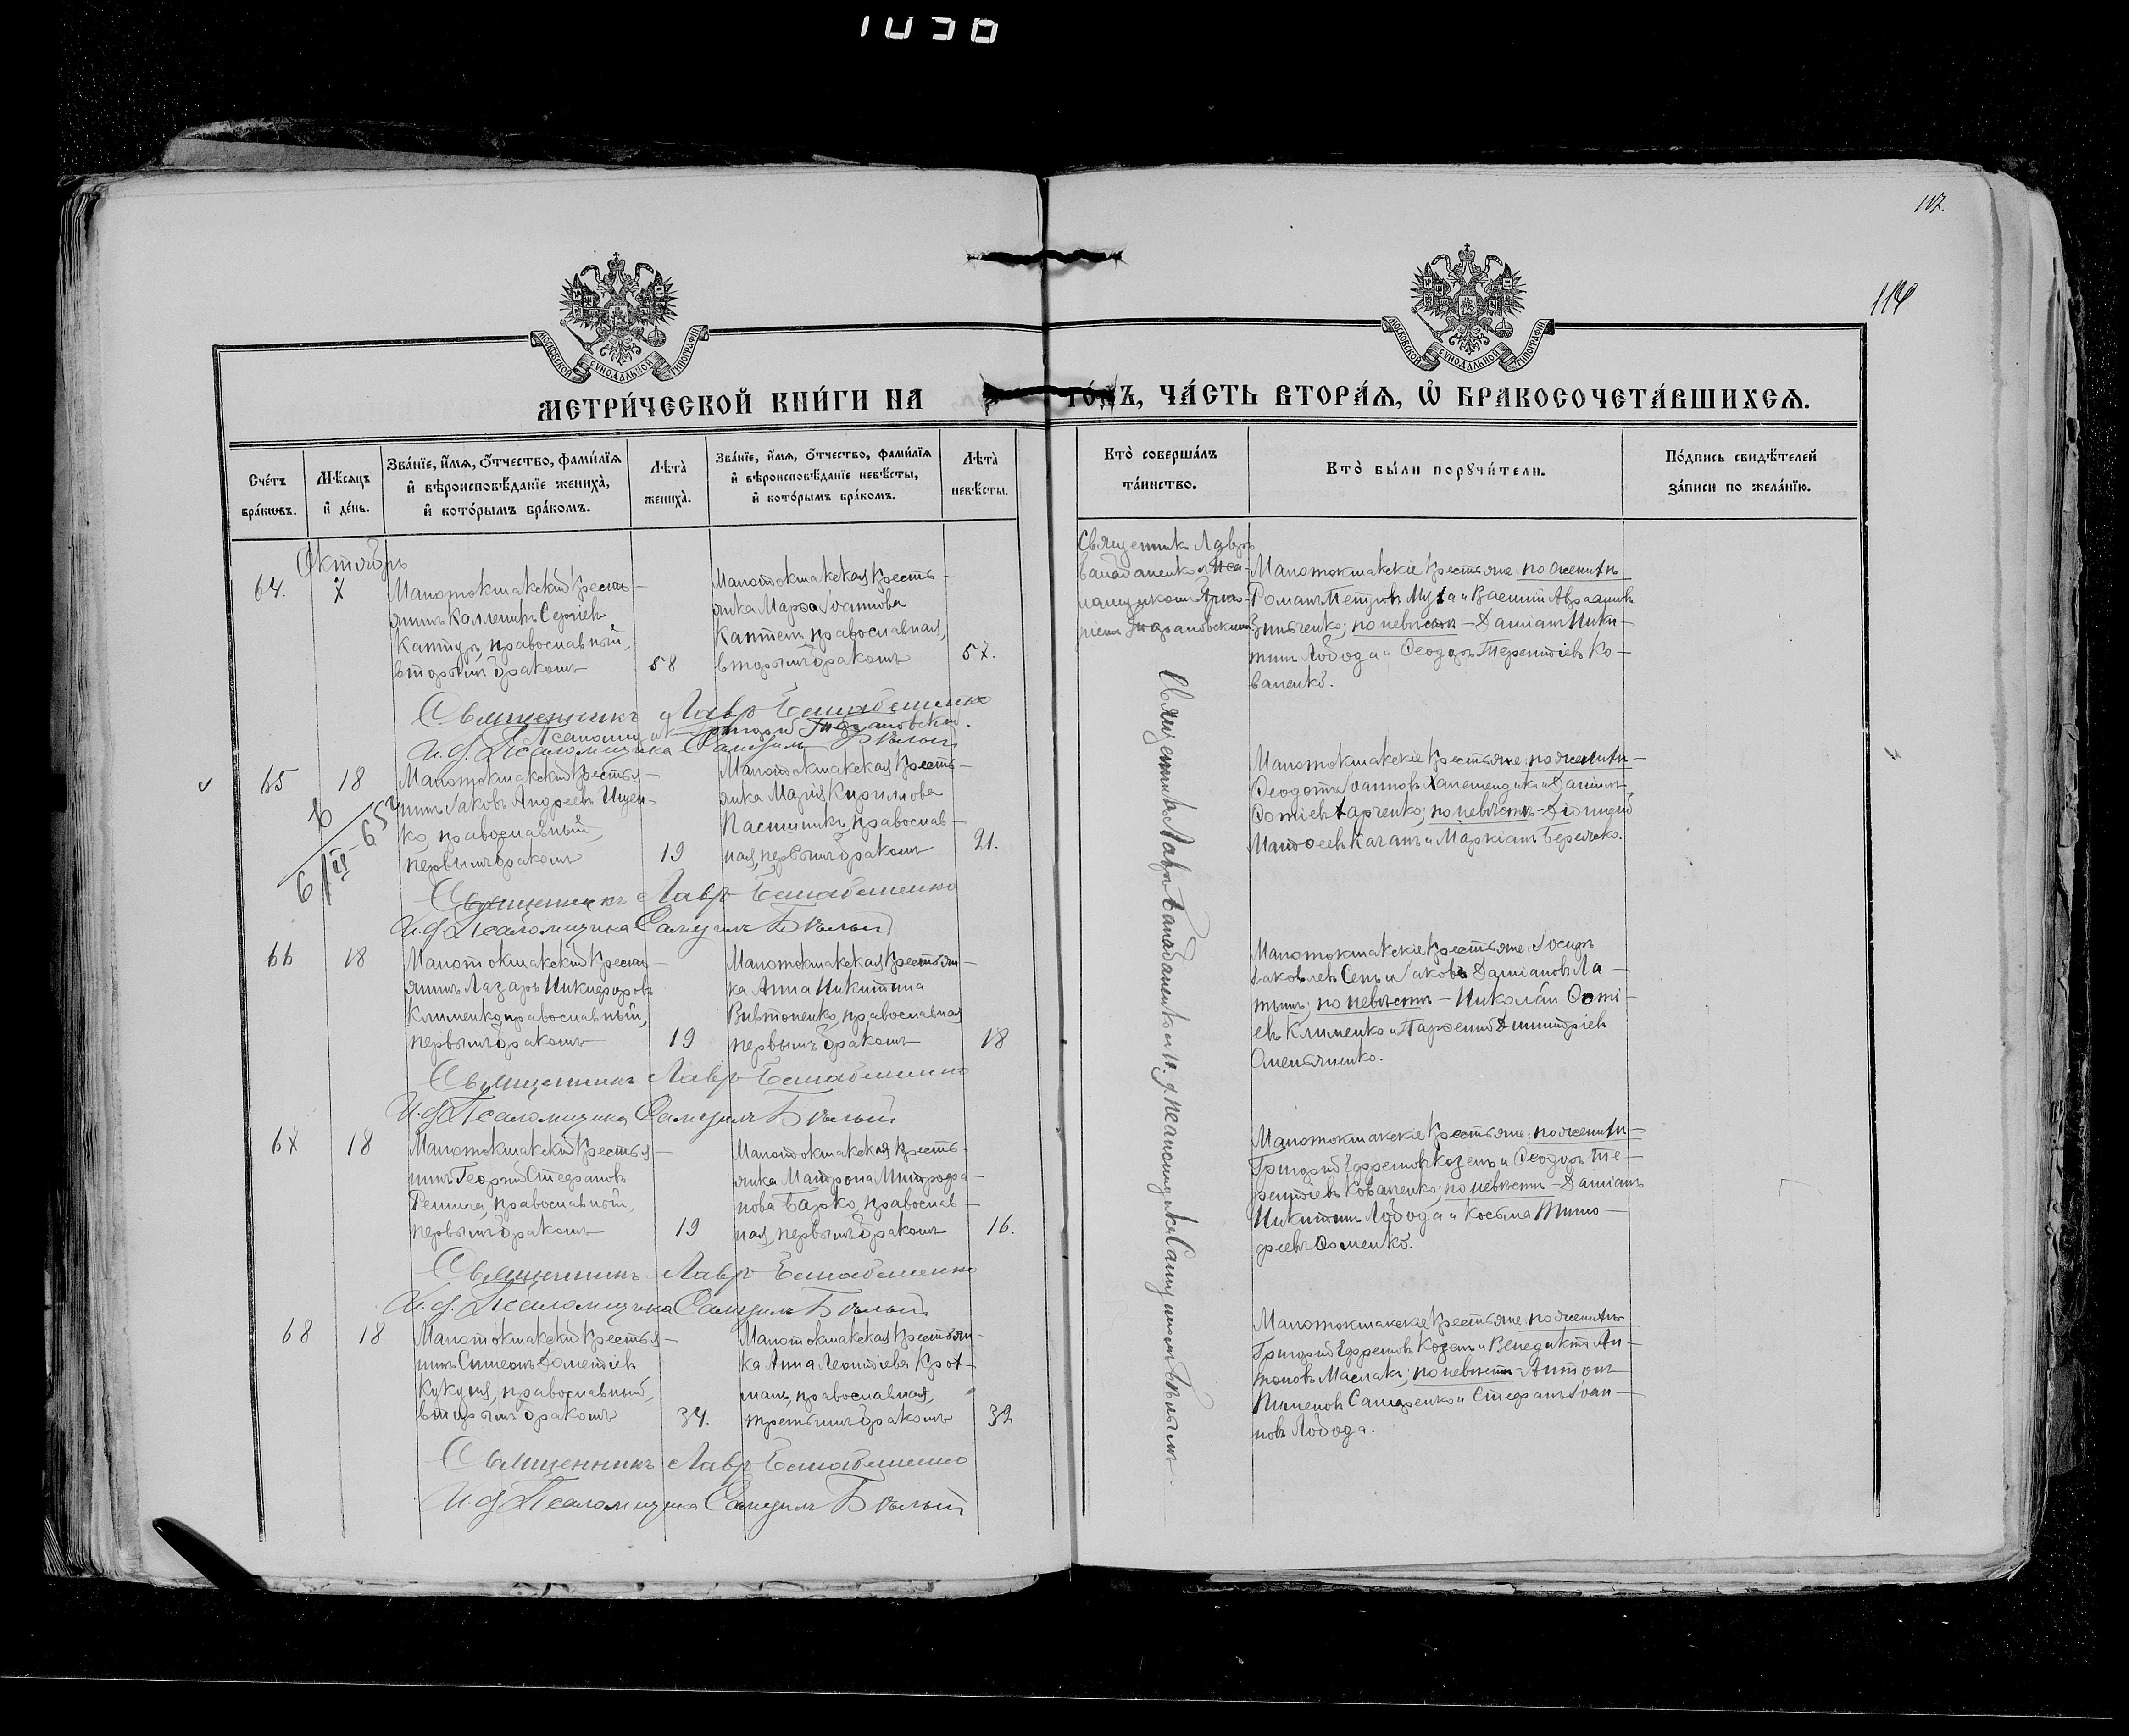 1030
117.
114
МОСКОВСКОЙ СѴНОДАЛЬНОЙ ТИПОГРАФІИ
МОСКОВСКОЙ СѴНОДАЛЬНОЙ ТИПОГРАФІИ
МЕТРИ́ЧЕСКОЙ КНИ́ГИ НА
ГО́ДЪ, ЧА́СТЬ ВТОРА́Ѧ, Ѡ҆ БРАКОСОЧЕТА́ВШИХСѦ.
Сче́тъ бра́кѡвъ.
Мѣ́сѧцъ и҆ де́нь.
Зва́нїе, и҆́мѧ, ѻ҆́тчество, фами́лїѧ
и҆ вѣроисповѣ́данїе жениха̀,
и҆ кото́рымъ бра́комъ.
Лѣта̀ жениха̀.
Зва́нїе, и҆́мѧ, ѻ҆́тчество, фами́лїѧ
и҆ вѣроисповѣ́данїе невѣ́сты,
и҆ кото́рымъ бра́комъ.
Лѣта̀ невѣ́сты.
Кто̀ соверша́лъ
та́инство.
Кто̀ бы́ли порꙋчи́тели.
По́дпись свидѣ́телей
за́писи по жела́нїю.
Октябрь
64.
7
Малотокмакскій Кресть-
янинъ Каллиникъ Сергіевъ
православный,
вторымъ бракомъ
58
Малотокмакская Кресть-
янка Марѳа Іоаннова
православная,
вторымъ бракомъ
57.
Священникъ Лавръ
Малотокмакскіе Крестьяне, по женихѣ
Романъ Петровъ Муха и Василій Авраамовъ
Зинченко; по невѣстѣ – Даміанъ Ники-
тинъ Лобода и Ѳеодоръ Терентіевъ Ко-
валенко.
Священникъ Лавръ
Псаломщикъ Григорій
И. д. Псаломщика Самуилъ Бѣлый
65
18
Малотокмакскій Крестья-
нинъ Іаковъ Андреевъ Ищен-
ко, православный,
первымъ бракомъ
19
Малотокмакская Кресть-
янка Марія Кирилова
Пасишникъ, православ-
ная, первымъ бракомъ
21.
Малотокмакскіе Крестьяне, по женихѣ –
Ѳеодотъ Іоанновъ и Даніилъ
Ѳоміевъ Харченко; по невѣстѣ – Діомидъ
Матѳеевъ Каганъ и Маркіанъ
Священникъ Лавръ
И. д. Псаломщика Самуилъ Бѣлый
66
18
Малотокмакскій Кресть-
янинъ Лазарь Никифоровъ
Клименко, православный,
первымъ бракомъ
19
Малотокмакская Крестьян-
ка Анна Никитина
православная
первымъ бракомъ
18
Малотокмакскіе Крестьяне, Іосифъ
Іаковлевъ Сепъ и Іаковъ Даміановъ Ла-
тышъ; по невѣстѣ – Николай Ѳомі-
евъ Клименко и Парѳеній Димитріевъ
Омельяненко.
Священникъ Лавръ
И. д. Псаломщика Самуилъ Бѣлый
67
18
Малотокмакскій Крестья-
нинъ Георгій Стефановъ
Репига, православный,
первымъ бракомъ
19
Малотокмакская Кресть-
янка Матрона Митрофа-
нова Барко, православ-
ная, первымъ бракомъ
16.
Малотокмакскіе Крестьяне, по женихѣ –
Григорій Ефремовъ Козелъ и Ѳеодоръ Те-
рентіевъ Коваленко; по невѣстѣ – Даміанъ
Никитинъ Лобода и Косьма Тимо-
ѳеевъ Ѳоменко.
Священникъ Лавръ
И. д. Псаломщика Самуилъ Бѣлый
68
18
Малотокмакскій Крестья-
нинъ Симеонъ Дометіевъ
Кукуля, православный,
вторымъ бракомъ
34.
Малотокмакская Крестьян-
ка Анна Леонтіева Крох-
маль, православная,
третьимъ бракомъ
32
Малотокмакскіе Крестьяне, по женихѣ
Григорій Ефремовъ Козелъ и Венедиктъ Ан-
тоновъ Маслакъ; по невѣстѣ – Антонъ
Пименовъ и Стефанъ Іоан-
новъ Лобода.
Священникъ Лавръ
И. д. Псаломщика Самуилъ Бѣлый
Священникъ Лавръ и И. д. псаломщика Самуилъ Бѣлый.